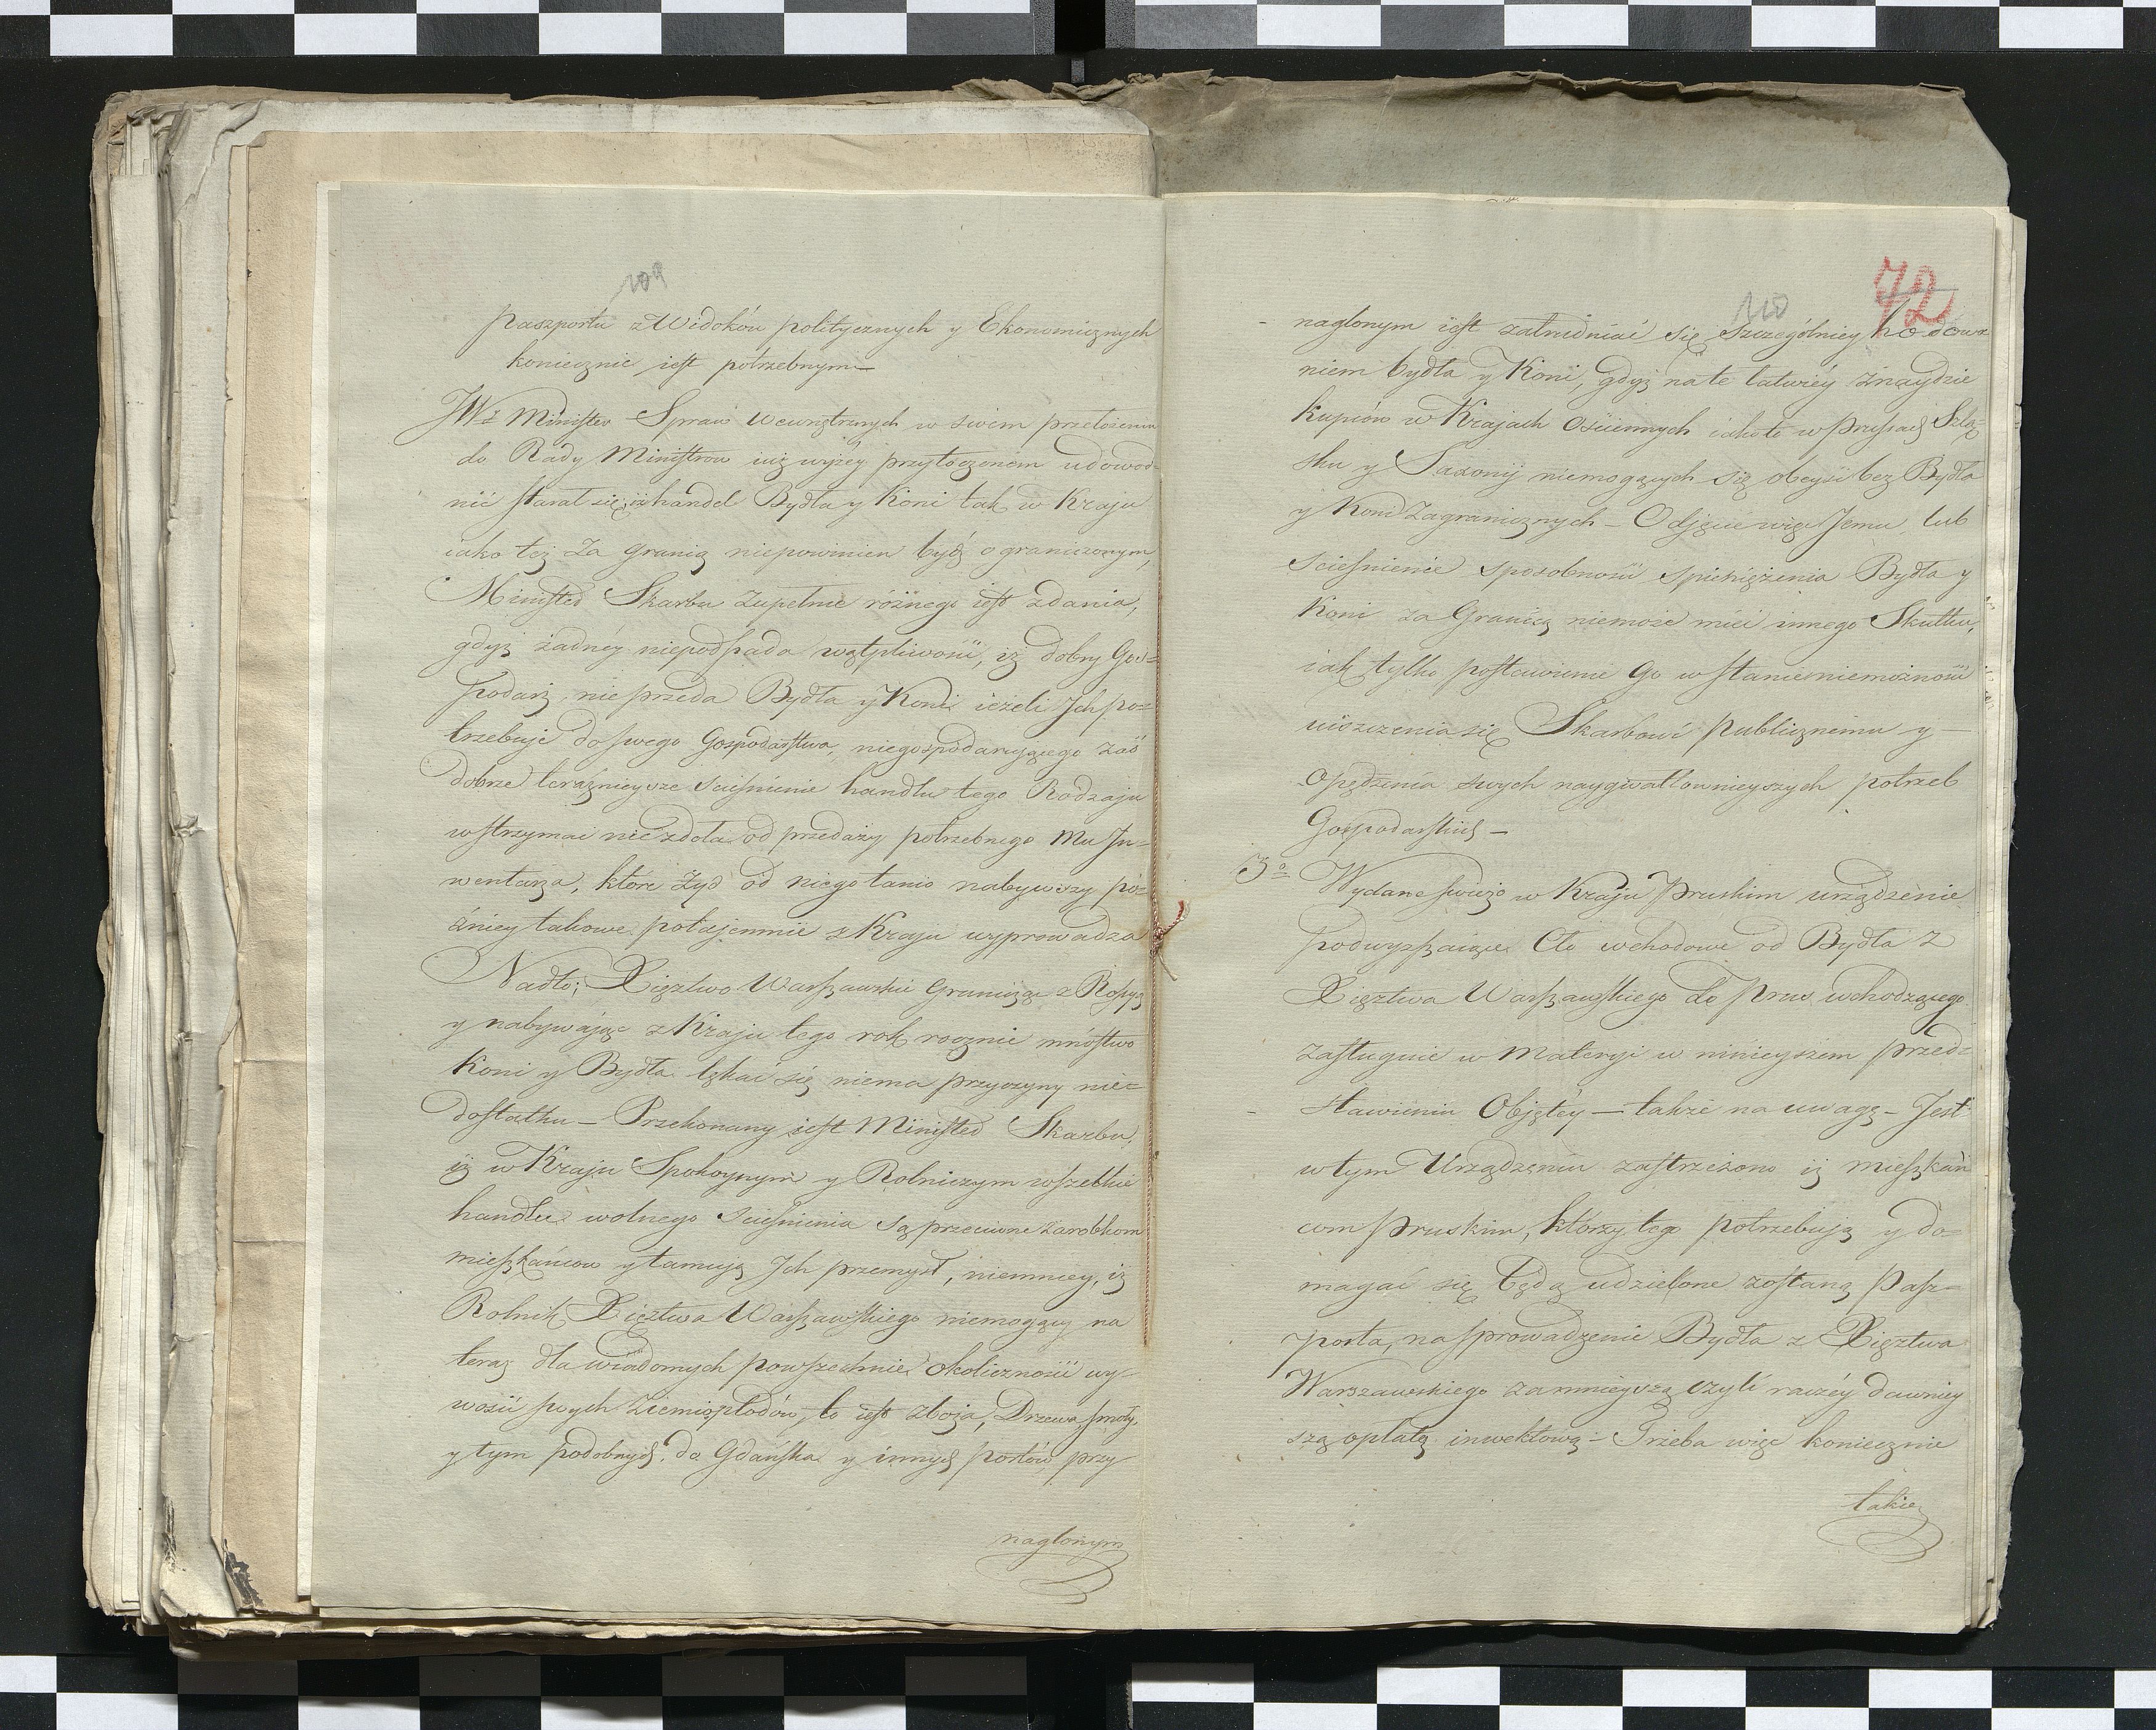 109
paszportu z Widoków politycznych y Ekonomicznych
koniecznie iest potrzebnym —
JWz Minister Spraw Wewnętrznych w swem przełożeniu
do Rady Ministrow iuż wyżey przytoczonem udowod=
nić starał się, iż handel Bydła y Koni tak w Kraju
iako też za granią niepowinien bydź ograniczonym,
Minister Skarbu zupełnie różnego iest zdania,
gdyż żadnéy niepodpada wątpliwości, iż dobry Gos=
podarz, nie przeda Bydła y Koni ieżeli Jch po=
trzebuje do swego Gospodarstwa, niegospodaruiącego zaś
dobrze teraźnieysze scieśnienie handlu tego Rodzaju
wstrzymać nie zdoła od przedaży potrzebnego Mu Jn=
wentarza, które Żyd od niego tanio nabywszy pó=
źniey takowe potajemnie z Kraju wyprowadza
Nadto; Xięztwo Warszawskie Granicząc z Rossyą
y nabywając z Kraju tego rok rocznie mnóstwo
Koni y Bydła lękać się niema przyczyny nie=
dostatku — Przekonany iest Minister Skarbu,
iż w Kraju Spokoynym y Rolniczym wszelkie
handlu wolnego scieśnienia są przeciwne zarobkom
mieszkańcow y tamuią Jch przemysł, niemniey, iż
Rolnik Xięztwa Warszawskiego niemogący na
teraz dla wiadomych powszechnie okoliczności wy=
wozić swych Ziemiopłodów, to iest zboża, Drzewa, smoły,
y tym podobnych, do Gdańska y innych portów, przy
naglonym
110
72
naglonym iest zatrudniać się szczególniey hodowa
niem bydła y Koni, gdyż na te łatwiéy znaydzie
kupców w Krajach Ościennych iakoto w Prusach Szlą=
sku y Saxonij niemogących się obeyść bez Bydła
y Koni Zagranicznych — Odjęcie więc Jemu, lub
scieśnienie sposobności spieniężenia Bydła y
Koni za Granicą niemoże mieć innego Skutku,
iak tylko postawienie Go w stanie niemożności
uiszczenia się Skarbowi publicznemu y —
opędzenia swych naygwałtownieyszych potrzeb
Gospodarskich —
3o Wydane świeżo w Kraju Pruskim urządzenie
podwyższaiące Cło wchodowe od Bydła z
Xięztwa Warszawskiego do Prus wchodzącego
zasługuie w Materyi w ninieyszem przed=
stawieniu Objętéy — także na uwagę — Jest
w tym Urządzeniu zastrzeżono iż mieszkań
com Pruskim, którzy tego potrzebują y do=
magać się będą udzielone zostaną Pasz=
porta, na sprowadzenie Bydła z Xięztwa
Warszawskiego za mnieyszą czyli raczéy dawniey
szą opłatą inwektową — Trzeba więc koniecznie
takie